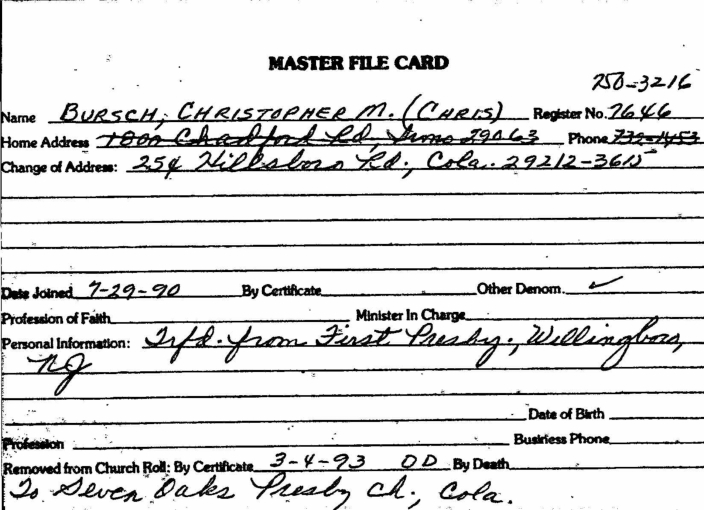 MASTER FILE CARD
750-3216
Name BURSCH, CHRISTOPHER M. (CHRIS) Register No. 7646
Home Address Rd, Irmo 29063 Phone
Change of Address: 254 Hillsboro Rd., Cola. 29212-3615
Date Joined 7-29-90 By Certificate Other Denom. ✓
Profession of Faith Minister In Charge
Personal Information: Trfd. from First Presby., Willingboro,
NJ
Date of Birth
Profession Business Phone
Removed from Church Roll: By Certificate 3-4-93 OD By Death
To Seven Oaks Presby Ch., Cola.